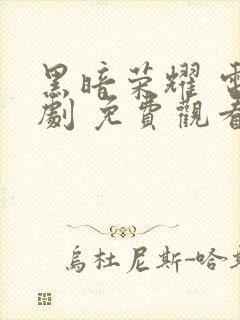 黑暗荣耀 電
劇 免費觀看
烏杜尼斯-哈斯